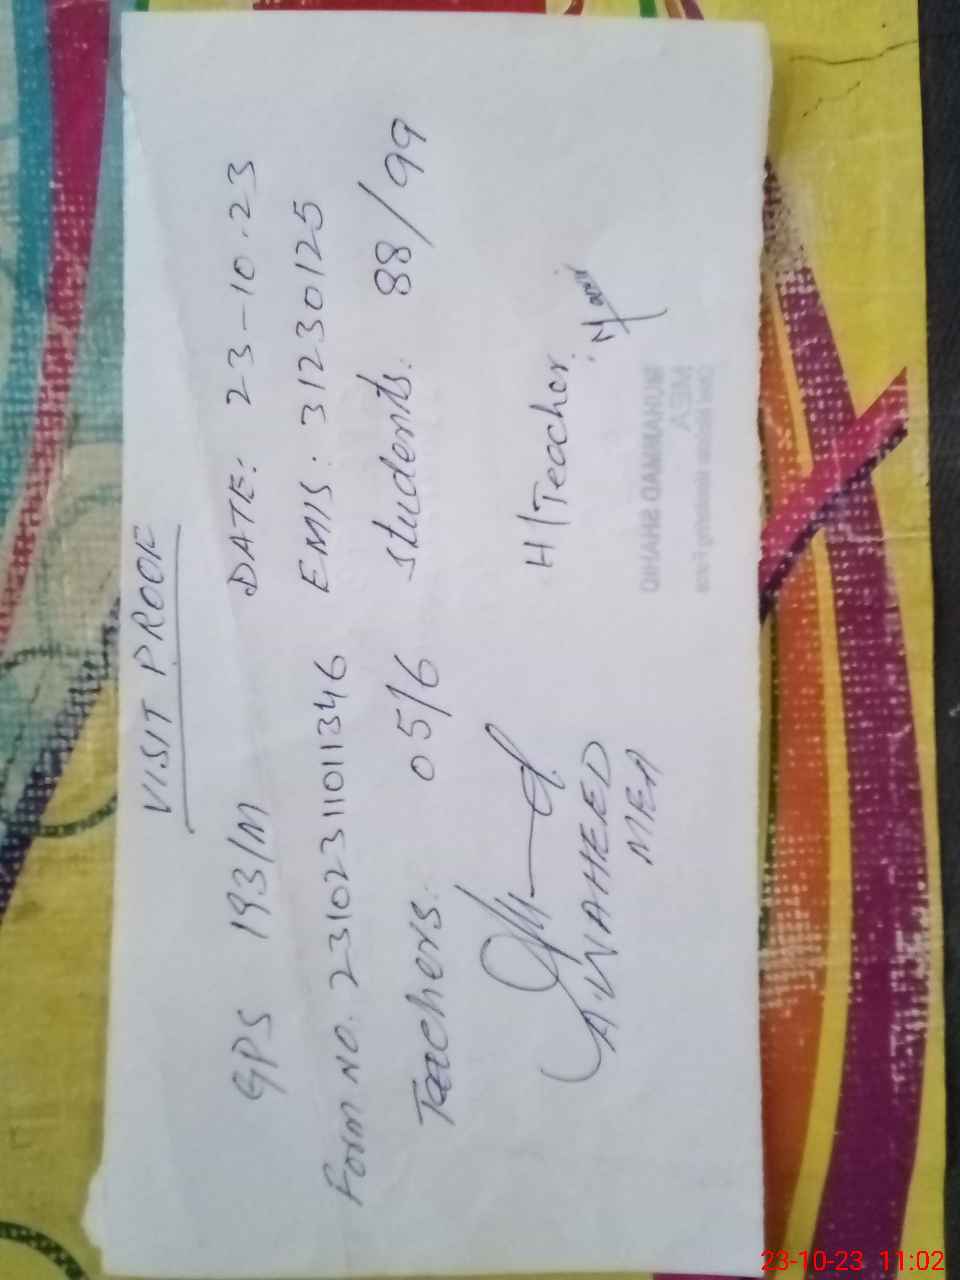 VISIT PROOF
GPS 193/M DATE: 23-10.23
Form NO. 23102311011346 EMIS: 31230125
Teachers. 05/6 students. 88/99
H/Teacher.
A.WAHEED
MEA
MUHAMMAD SHAHID
MEA
23-10-23 11:02